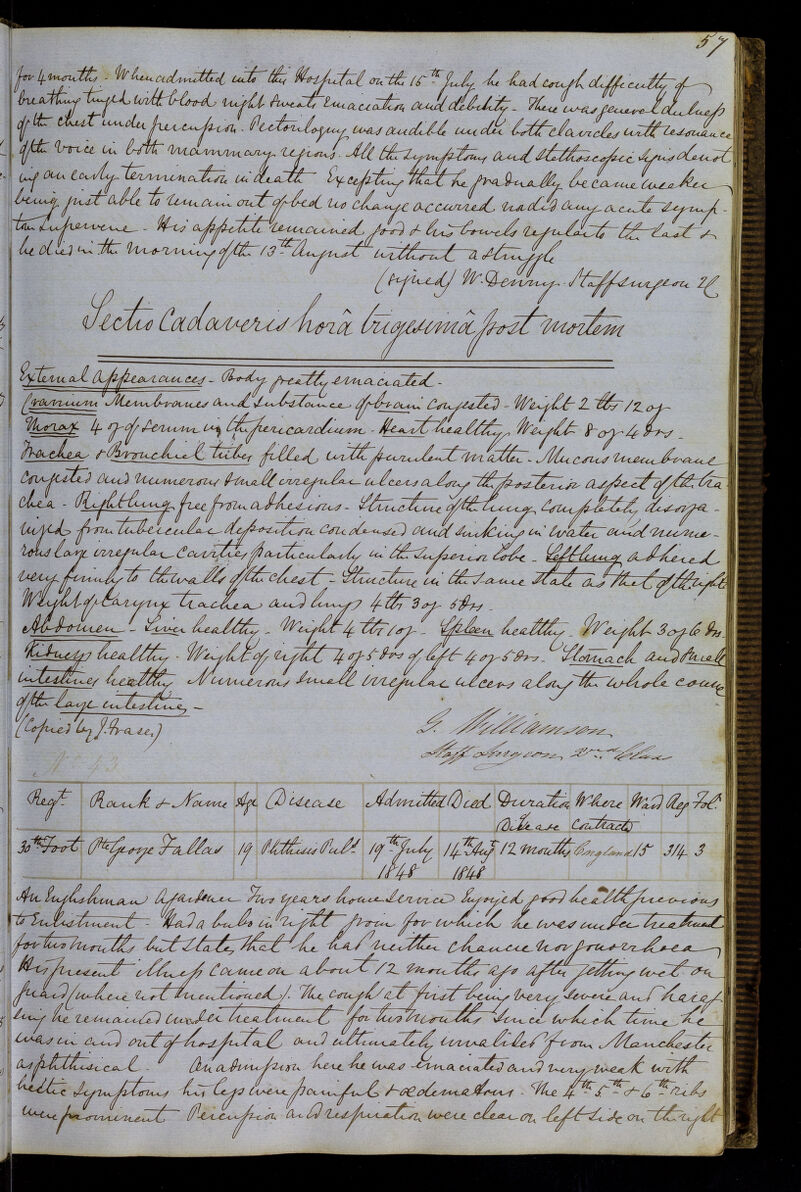 57
for 4 months - When admitted into this Hospital on the 15th July he had cough difficulty of
breathing tinged with blood night sweats emaciation and debility - There was general dulness
of the chest under percussion. Pectoriloquy was audible under both clavicles with resonance
of the voice in both mammary regions. All the symptoms and stethoscopic signs denot
ing an early termination in death Excepting that he gradually became weaker
being just able to remain out of bed no change occurred nor did any acute symp-
tom supervene - His appetite remained good & his bowels regular to the last &
he died in the morning of the 13th August without a struggle
(signed) W. Denny. Staff surgeon 2C
Sectio Cadaveris horâ trigesimâ post mortem
External appearances - Body greatly emaciated -
Cranium Membranes and substance of brain congested - Weight 2 lbs 12 oz
Thorax 4 oz of serum in the pericardium - Heart healthy Weight 8 oz 4 drs -
Trachea & Bronchial tubes filled with purulent matter - Mucous membrane
congested and numerous small irregular ulcers along the posterior aspect of the tra-
chea - Right lung free from adhesions - Structure of the lung completely disorga-
nized from tubercular deposition condensed and sinking in water and nume-
rous large irregular cavities particularly in the superior Lobe - Left lung adhered
very firmly to the walls of the chest - Structure in the same state as that of the right
Weight of Larynx trachea and lungs 4 lbs 3 oz 5 drs.
Abdomen - Liver healthy - Weight 4 lbs 1 oz - Spleen healthy - Weight 3 oz 6 drs
Kidneys healthy - Weight of right 4 oz 5 drs of left 4 oz 5 drs - Stomach and Small
intestines healthy Numerous small irregular ulcers along the whole course
of the large intestines -
(Copied by J. Fraser)
G. Williamson
Staff Surgeon 2nd Class
No 43
Regt. Rank & Name Age Disease Admitted Died Duration of Disease Where contracted Ward Reg Fol.
30th Foot Pte George Fallas 19 Phthisis Puls 19th July 1848 14th Augt 1848 12 months England 15 314 3
An Englishman a gardener Two years home service Enjoyed good health previous
to Enlistment - Had a bubo in right groin for which he was under treatment
for two months but states that he had neither chancre nor gonorrhoea
His present illness came on about 12 months ago after getting wet on
guard (where not mentioned). The cough at first being very severe and haras
sing he remained under treatment for two months since which time he
was in and out of hospital and ultimately invalided from Manchester
as phthisical. On admission here he was emaciated and very weak with
hectic symptoms his legs were painful & œdematous. The 4th 5th & 6th ribs
were prominent Percussion and respiration were clear on left side on the right